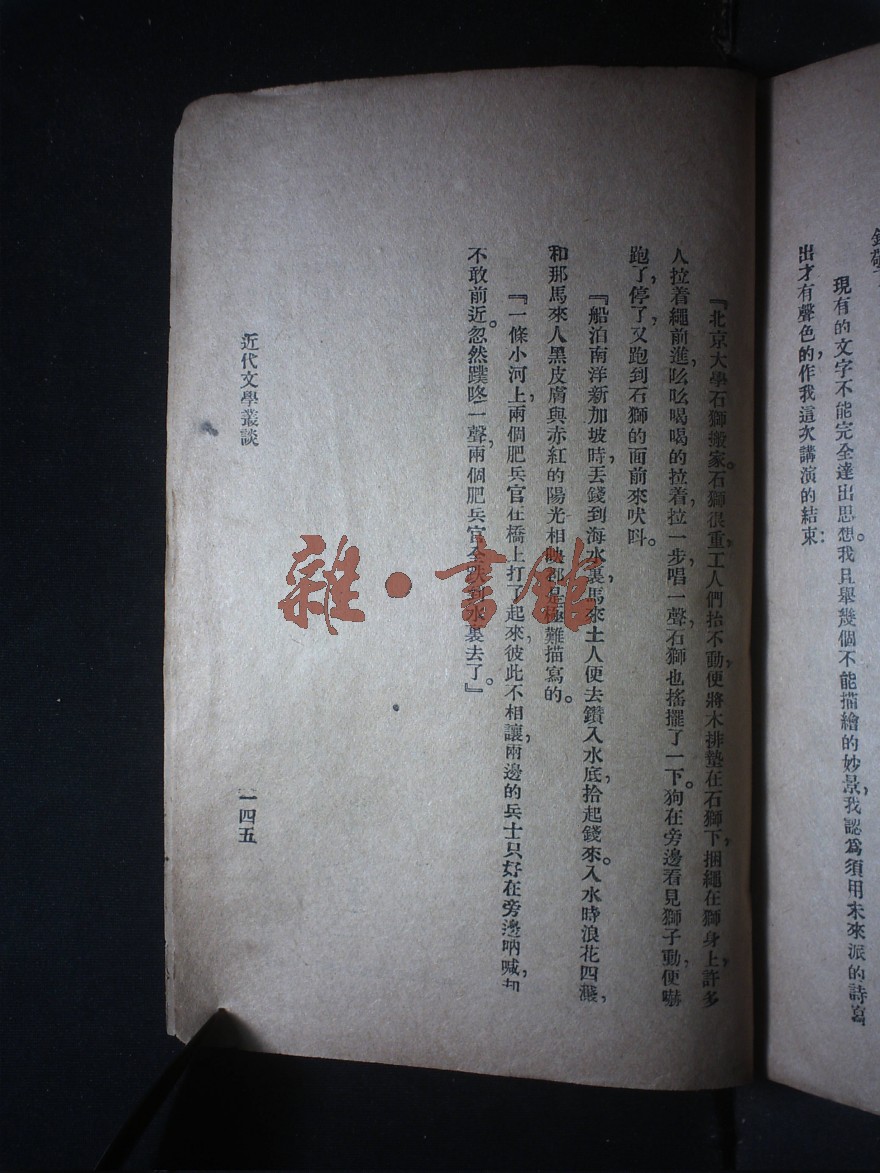 現有的文字不能完全達出思想。我且舉幾個不能描繪的妙景，我認爲須用未來派的詩寫
出才有聲色的，作我這次講演的結束：
『北京大學石獅搬家。石獅很重，工人們抬不動，便將木排墊在石獅下，捆繩在獅身上，許多
人拉着繩前進，吆吆喝喝的拉着，拉一步，唱一聲，石獅也搖擺了一下。狗在旁邊看見獅子動，便嚇
跑了，停了，又跑到石獅的面前來吠叫。
『船泊南洋新加坡時，丟錢到海水裏，馬來土人便去鑽入水底，拾起錢來。入水時浪花四濺，
和那馬來人黑皮膚與赤紅的陽光相映，都是極難描寫的。
『一條小河上，兩個肥兵官在橋上打了起來，彼此不相讓，兩邊的兵士只好在旁邊吶喊，却
不敢前近。忽然蹼咚一聲，兩個肥兵官全跌到水裏去了。』
近代文學叢談
一四五
雜·書館